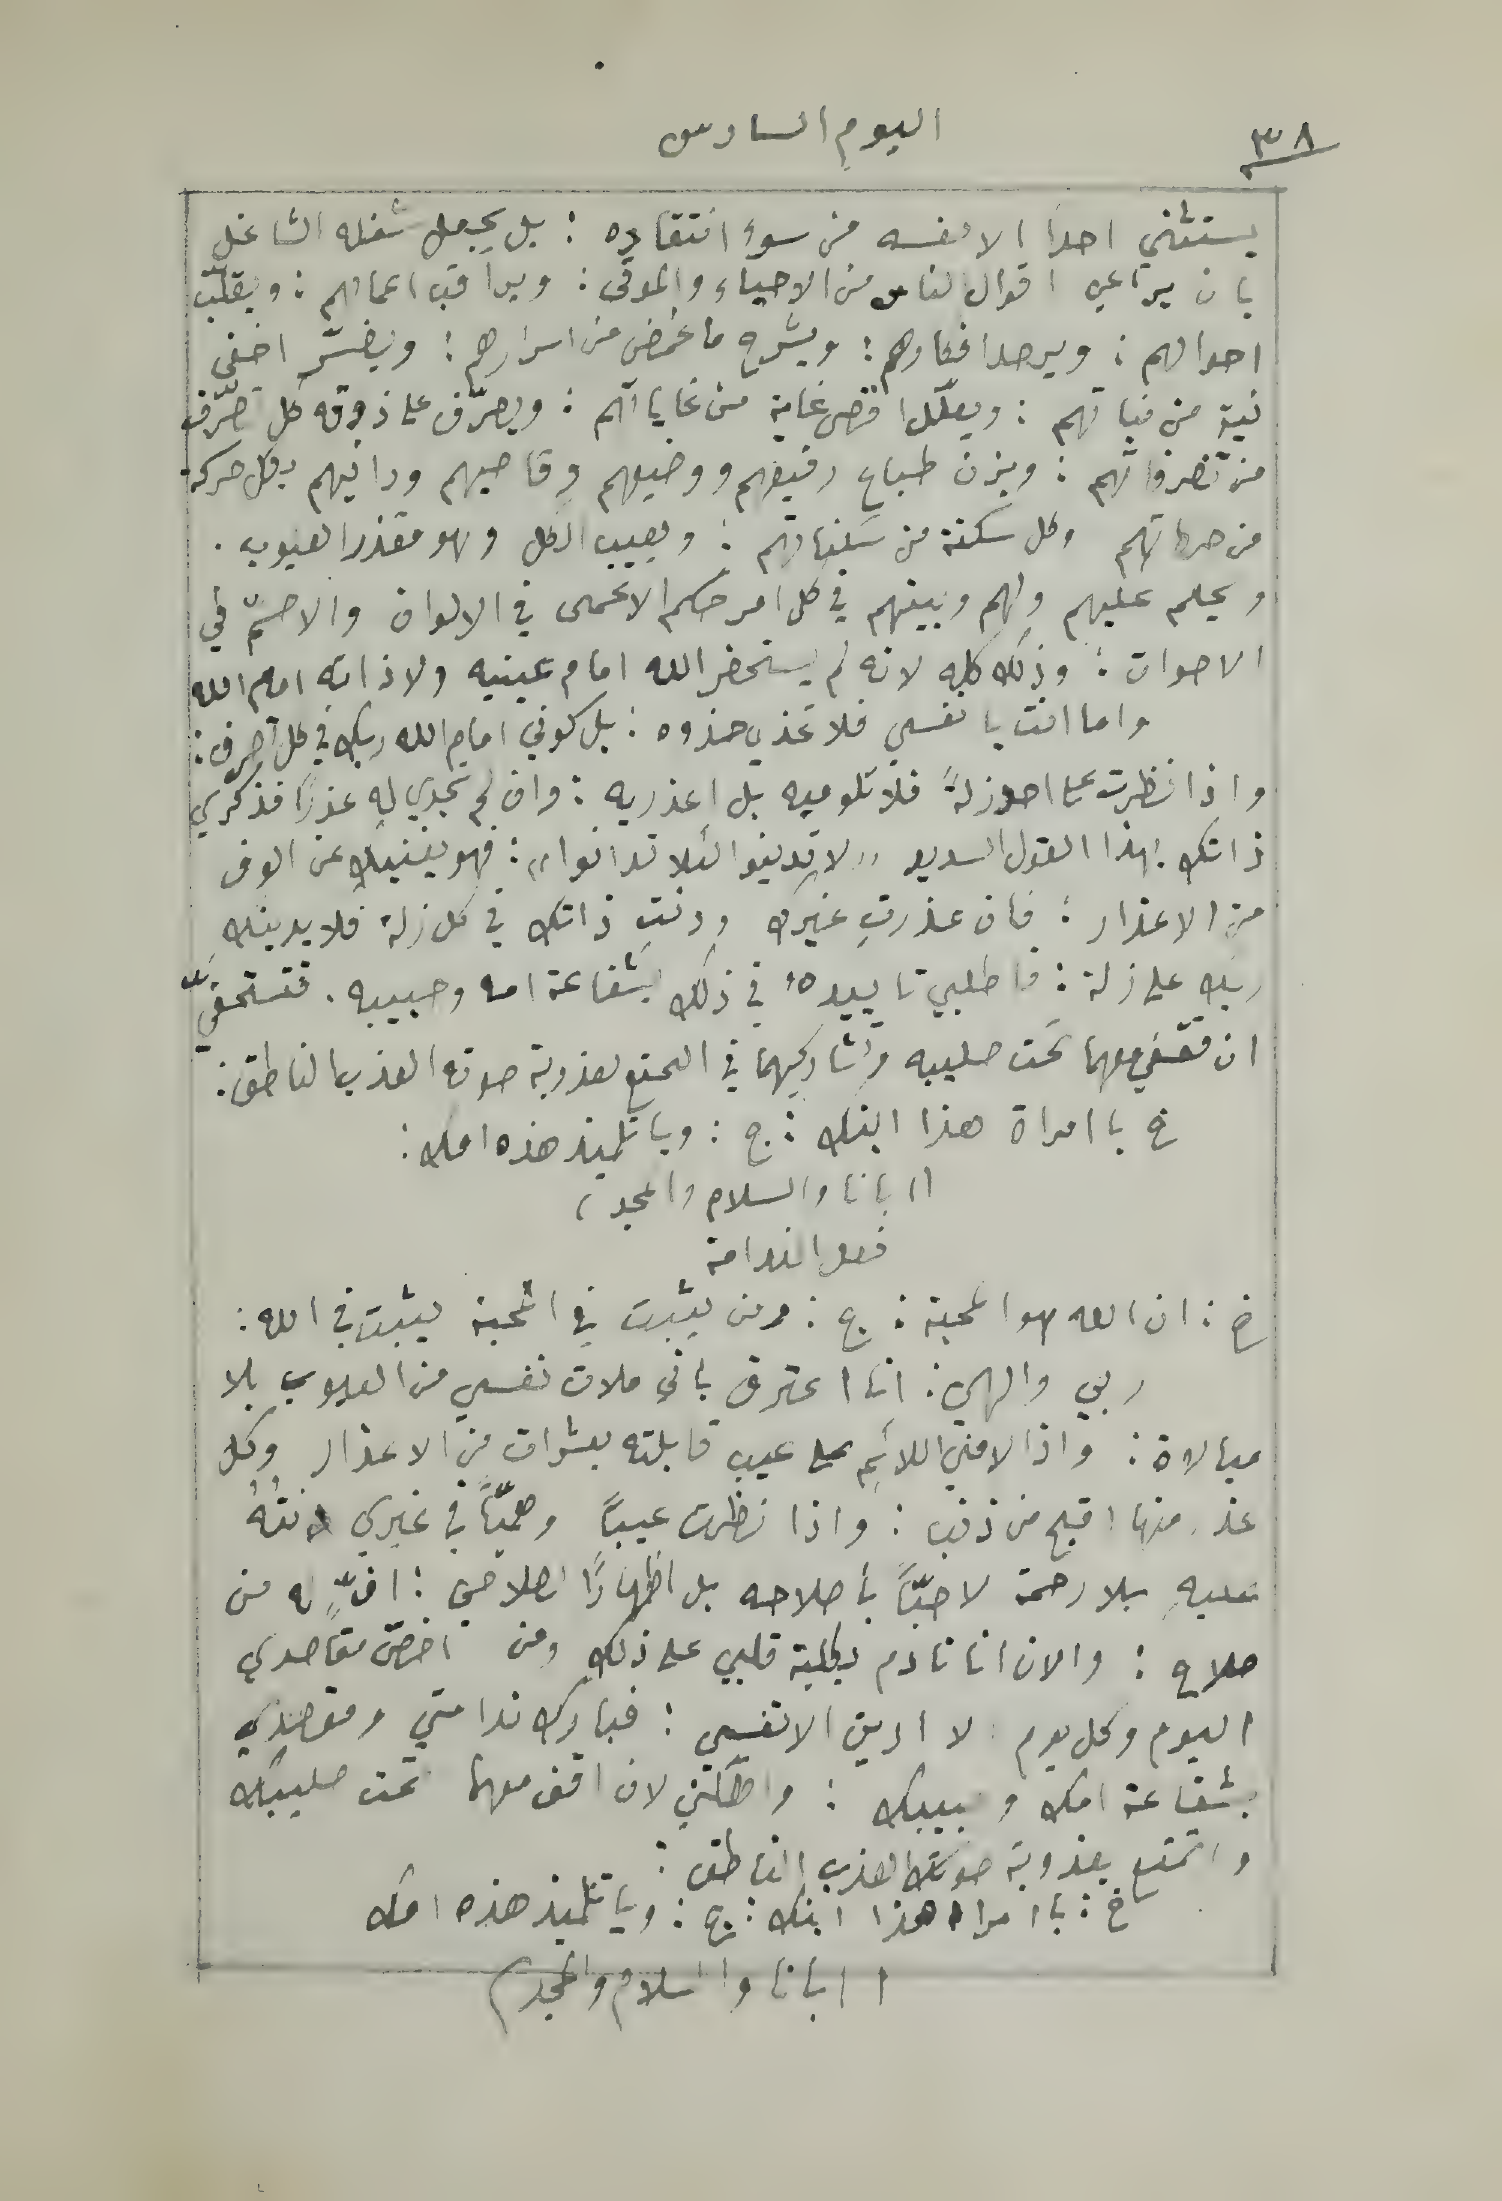 ٣٨
اليوم السادس
يستثني احدا الا نفسه من سوء انتقاده : بل يجعل شغله الشاغل
بان يراعي اقوال الناس من الاحياء والموتى : ويراقب اعمالهم : ويقلّب
احوالهم : ويرصد افكارهم : ويشرح ما غمض من اسرارهم : ويفسّر اخفى
نية من نياتهم : ويعلّل اقصى غاية من غاياتهم : ويصرّف على ذوقه كل تصرّف
من تصرفاتهم : ويزن طباع رفيعهم ووضيعهم وقاصيهم ودانيهم بكل حركة
من حركاتهم وكل سكنة من سكناتهم : ويعيب الكل وهو مقذر العيوب .
ويحكم عليهم ولهم وبينهم في كل امر حكم الاعمى في الالوان والاصمّ في
الاصوات : وذلك كله لانه لم يستحضر الله امام عينيه ولا ذاته امام الله
واما انت يا نفسي فلا تحذي حذوه : بل كوني امام الله ربك في كل تصرف :
واذا نظرت على احد زلةً فلا تلوميه بل اعذريه : وان لم تجدي له عذرًا فذكري
ذاتك بهذا القول السديد ,, لا تدينوا لئلا تدانوا ,, : فهو يغنيك عن الوف
من الاعذار : فان عذرتِ غيرك ودنتِ ذاتك في كل زلة فلا يدينك
ربك على زلة : فاطلبي تاييده في ذلك بشفاعة امه وحبيبه . فتستحقّي
ان تقفي معهما تحت صليبه وتشاركيهما في التمتع بعذوبة صوته العذب الناطق :
خ يا امراة هذا ابنك : ج : ويا تلميذ هذه امك :
(( ابانا والسلام والمجد )
فعل الندامة
خ : ان الله هو المحبة : ج : ومن يثبت في المحبة يثبت في الله :
ربي والهي : انا اعترف باني ملات نفسي من العيوب بلا
مبالاة : واذا لامني اللائم على عيب قابلته بعشرات من الاعذار وكل
عذر منها اقبح من ذنب : واذا نظرت عيبًا وهميًّا في غيري دنتُهُ
عليه بلا رحمة لا حبًّا باصلاحه بل اظهارًا لصلاحي : افٍّ له من
صلاح : والان انا نادم بكلية قلبي على ذلك ومن اخصّ مقاصدي
اليوم وكل يوم لا ادين الا نفسي : فبارك ندامتي ومقصدي
بشفاعة امك وحبيبك : واهّلني لان اقف معهما تحت صليبك
واتمتع بعذوبة صوتك العذب الناطق :
خ : يا امراة هذا ابنك : ج : ويا تلميذ هذه امك
(( ابانا والسلام والمجد )